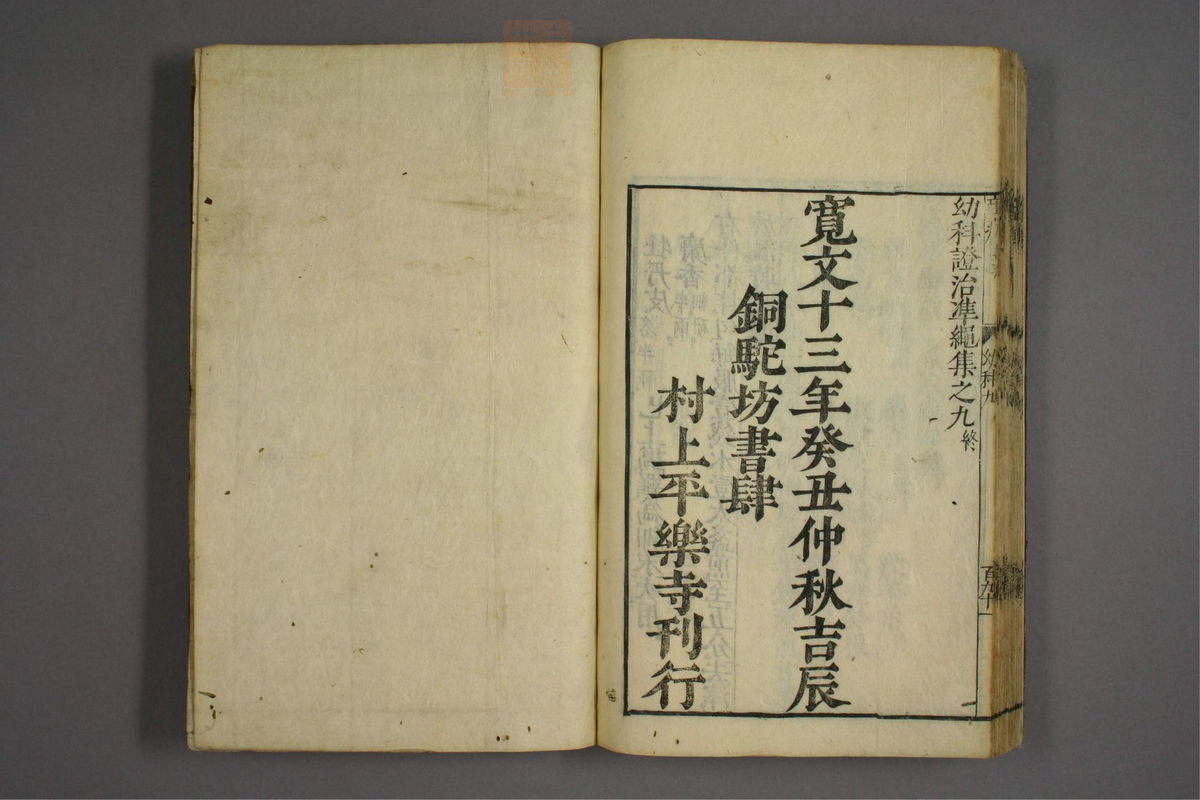 幼科證治準繩集之九終
寛文十三年癸丑仲秋吉辰
銅駝坊書肆
村上平樂寺刊行
幼科九